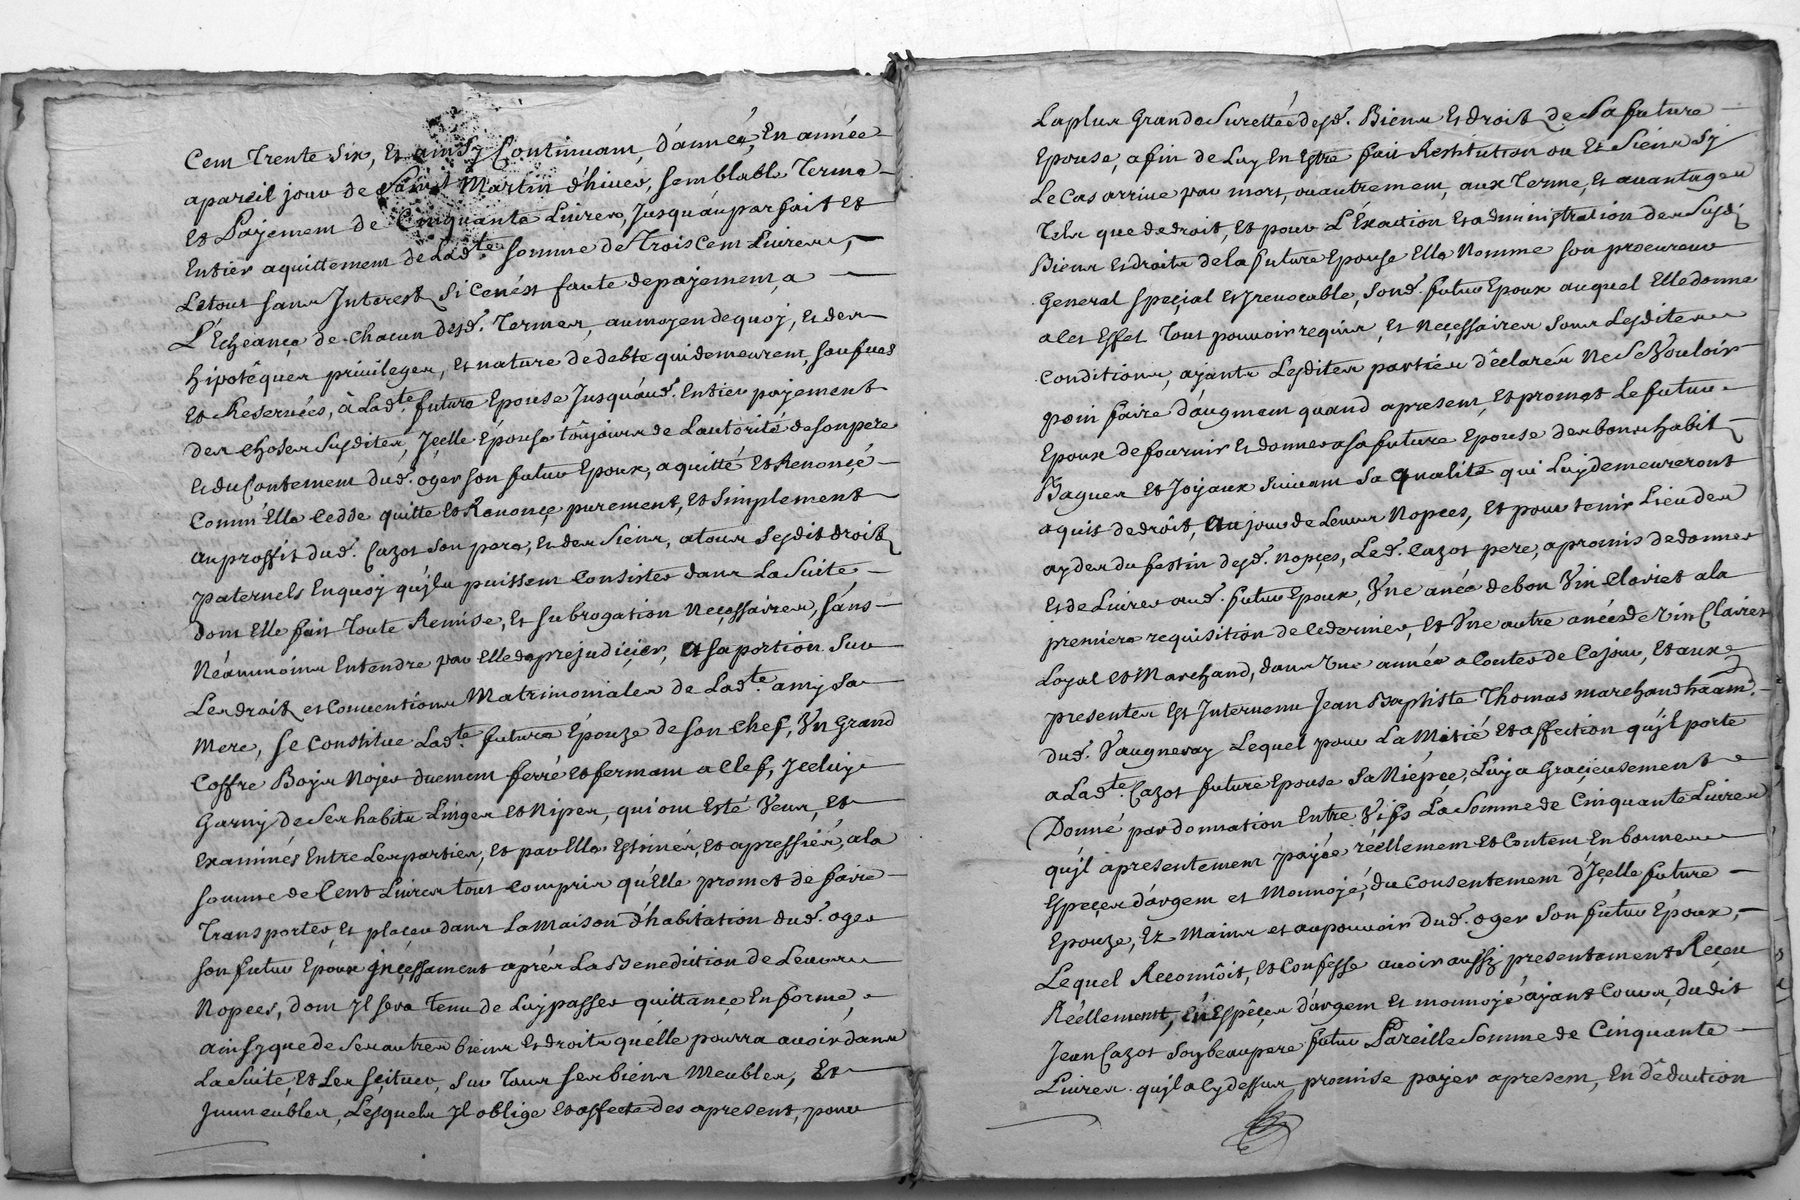 Cem Trente Six, Et ainsy Continuam, d'année, En année
apareil jour de Saint Martin d'hiver, semblable Terme
Et Payement de Cinquante Livres, Jusqu'au parfait Et
Entier aquittement de Lad.te somme de Trois Cem Livres,
Letout sans Interest, Si cenést faute depajement, a
L'Echeançe de Chacun desd. Termes, aumoyen dequoy, et des
hipotêques privileges, et nature de debte qui demeurent, saufves
Et Reservées, à Lad.te future Epouse Jusquáud. Entier pajement
des choses Susdites, Jçelle Épouse toûjours de Lautorité desonpere
et duContement dud. oger son futur Epoux, a quitté Et Renonçé
Comm'Elle Cedde quitte et Renonçe purement, et Simplement
au proffit dud. Cazot Son pere, et des Siens, atous Sesdit droits
paternels Enquoy quýls puissent Consister dans La Suite,
dont Elle fait Toute Remise, et subrogation neçessaires, sans
Néammoins Entendre par Elle deprejudiçier, a sa portion Sur
Les droits et Conventions Matrimoniales de Lad.te amy Sa
Mere, se Constitue Lad.te future Épouze de son Chef, Vn Grand
Coffre Boys Nojer duement ferré et fermam a Clef, Jceluy
Garny de Ses habits Linges Et Nipes, qui om Esté Veus, et
Examinés Entre Les parties, et par Elles Estimés, et apressiés, ala
somme de Cent Livres tout compris qu'Elle promet de faire
Transporter, et plaçer dans La Maison d'habitation dud. oger
son futur Epoux jnçessament aprés La Benediction de Leurs
Nopces, dom Jl sera Tenu de Luy passer quittançe En forme,
ainsy que de Ses autres biens Et droits quélle pourra avoir dans
La Suite, Et Les Scituer, sur Tous ses biens Meubles, Et
Jmmeubles, Lesquels Jl oblige et affecte des apresent, pour
Laplus Grande Surettée desd. Biens Et droits de Sa future
Epouse, afin de Luy En Estre fait Restitution ou Et Siens Sy
Le Cas arrive par mort, ou autrement, aux Terme, Et avantages
Tels que dedroit, et pour L'Exaction Et administration des Susd.
Biens Et droits dela future Epouse Elle Nomme son procureur
General speçial et Jrrevocable, Sond. futur Epoux auquel Elle donne
a Cet Effet Tout pouvoir requis, et Neçessaires Sous Lesdites
Conditions, ayants Lesdites parties déclarés Ne Se Vouloir
poin faire d'augmem quand apresent, Et promet Le futur
Epoux defournir Et donner a sa future Epouse des bons habits
Bagues Et Joyaux Suivam Sa qualité qui Luy demeureront
aquis dedroit, au jour de Leurs Nopces, Et pour tenir Lieu des
aydes du festin desd. Nopces, Led. Cazot pere, a promis dedonner
et de Livrer aud. futur Epoux, Vne anée debon Vin Clairet ala
premiere requisition de Cedernier, Et Vne autre anée de Vin Clairet
Loyal et Marchand, dans Vne année a Conter de Cejour, et aux
presentes Est Jntervenu Jean Baptiste Thomas marchand
dud. Vaugneray Lequel pour Lamitié Et affection qu'jl porte
a Lad.te Cazot future Epouse Sa Niépce, Luy a Graçieusement
Donné par donnation Entre Vifs La Somme de Cinquante Livres
qu'jl apresentement payée réellement et Contem En bonnes
Espeçes d'argem et Monnojé, du Consentement d'Jçelle future
Epouze, Ez Mains et aupouvoir dud. oger Son futur Époux,
Lequel Reconnôit, et Confesse avoir aussy presentement Reçeu
Réellement, én Espêçes d'argem Et monnojé ayant Cours, dudit
Jean Cazot Son beaupere futur Pareille Somme de Cinquante
Livres qu'jl a Cydessus, promise payer apresem, En déduction